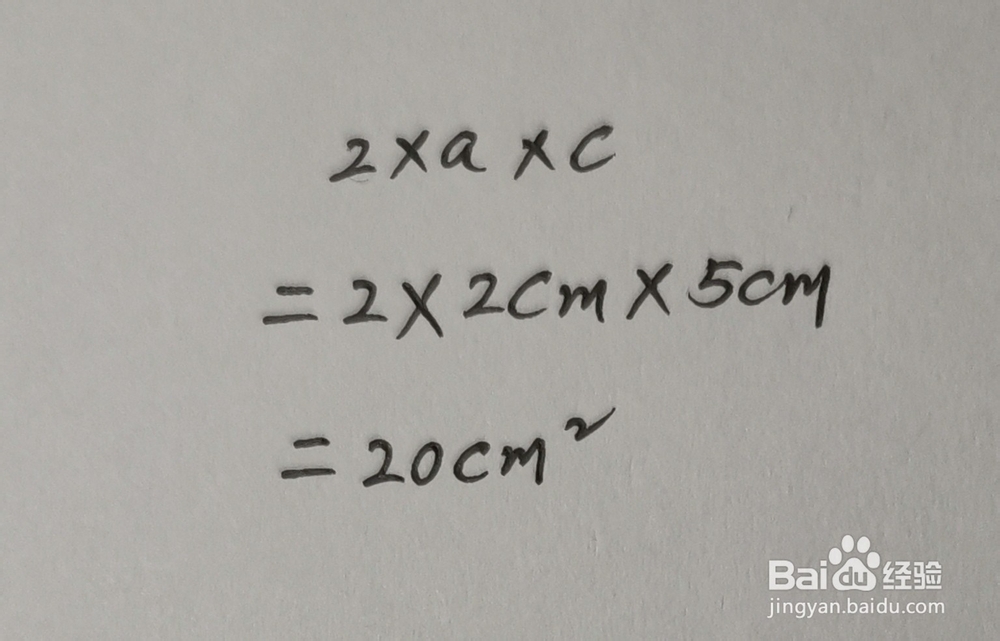 2×a×c
=2×2cm×5cm
=20cm²
Baidu经验
jingyan.baidu.com